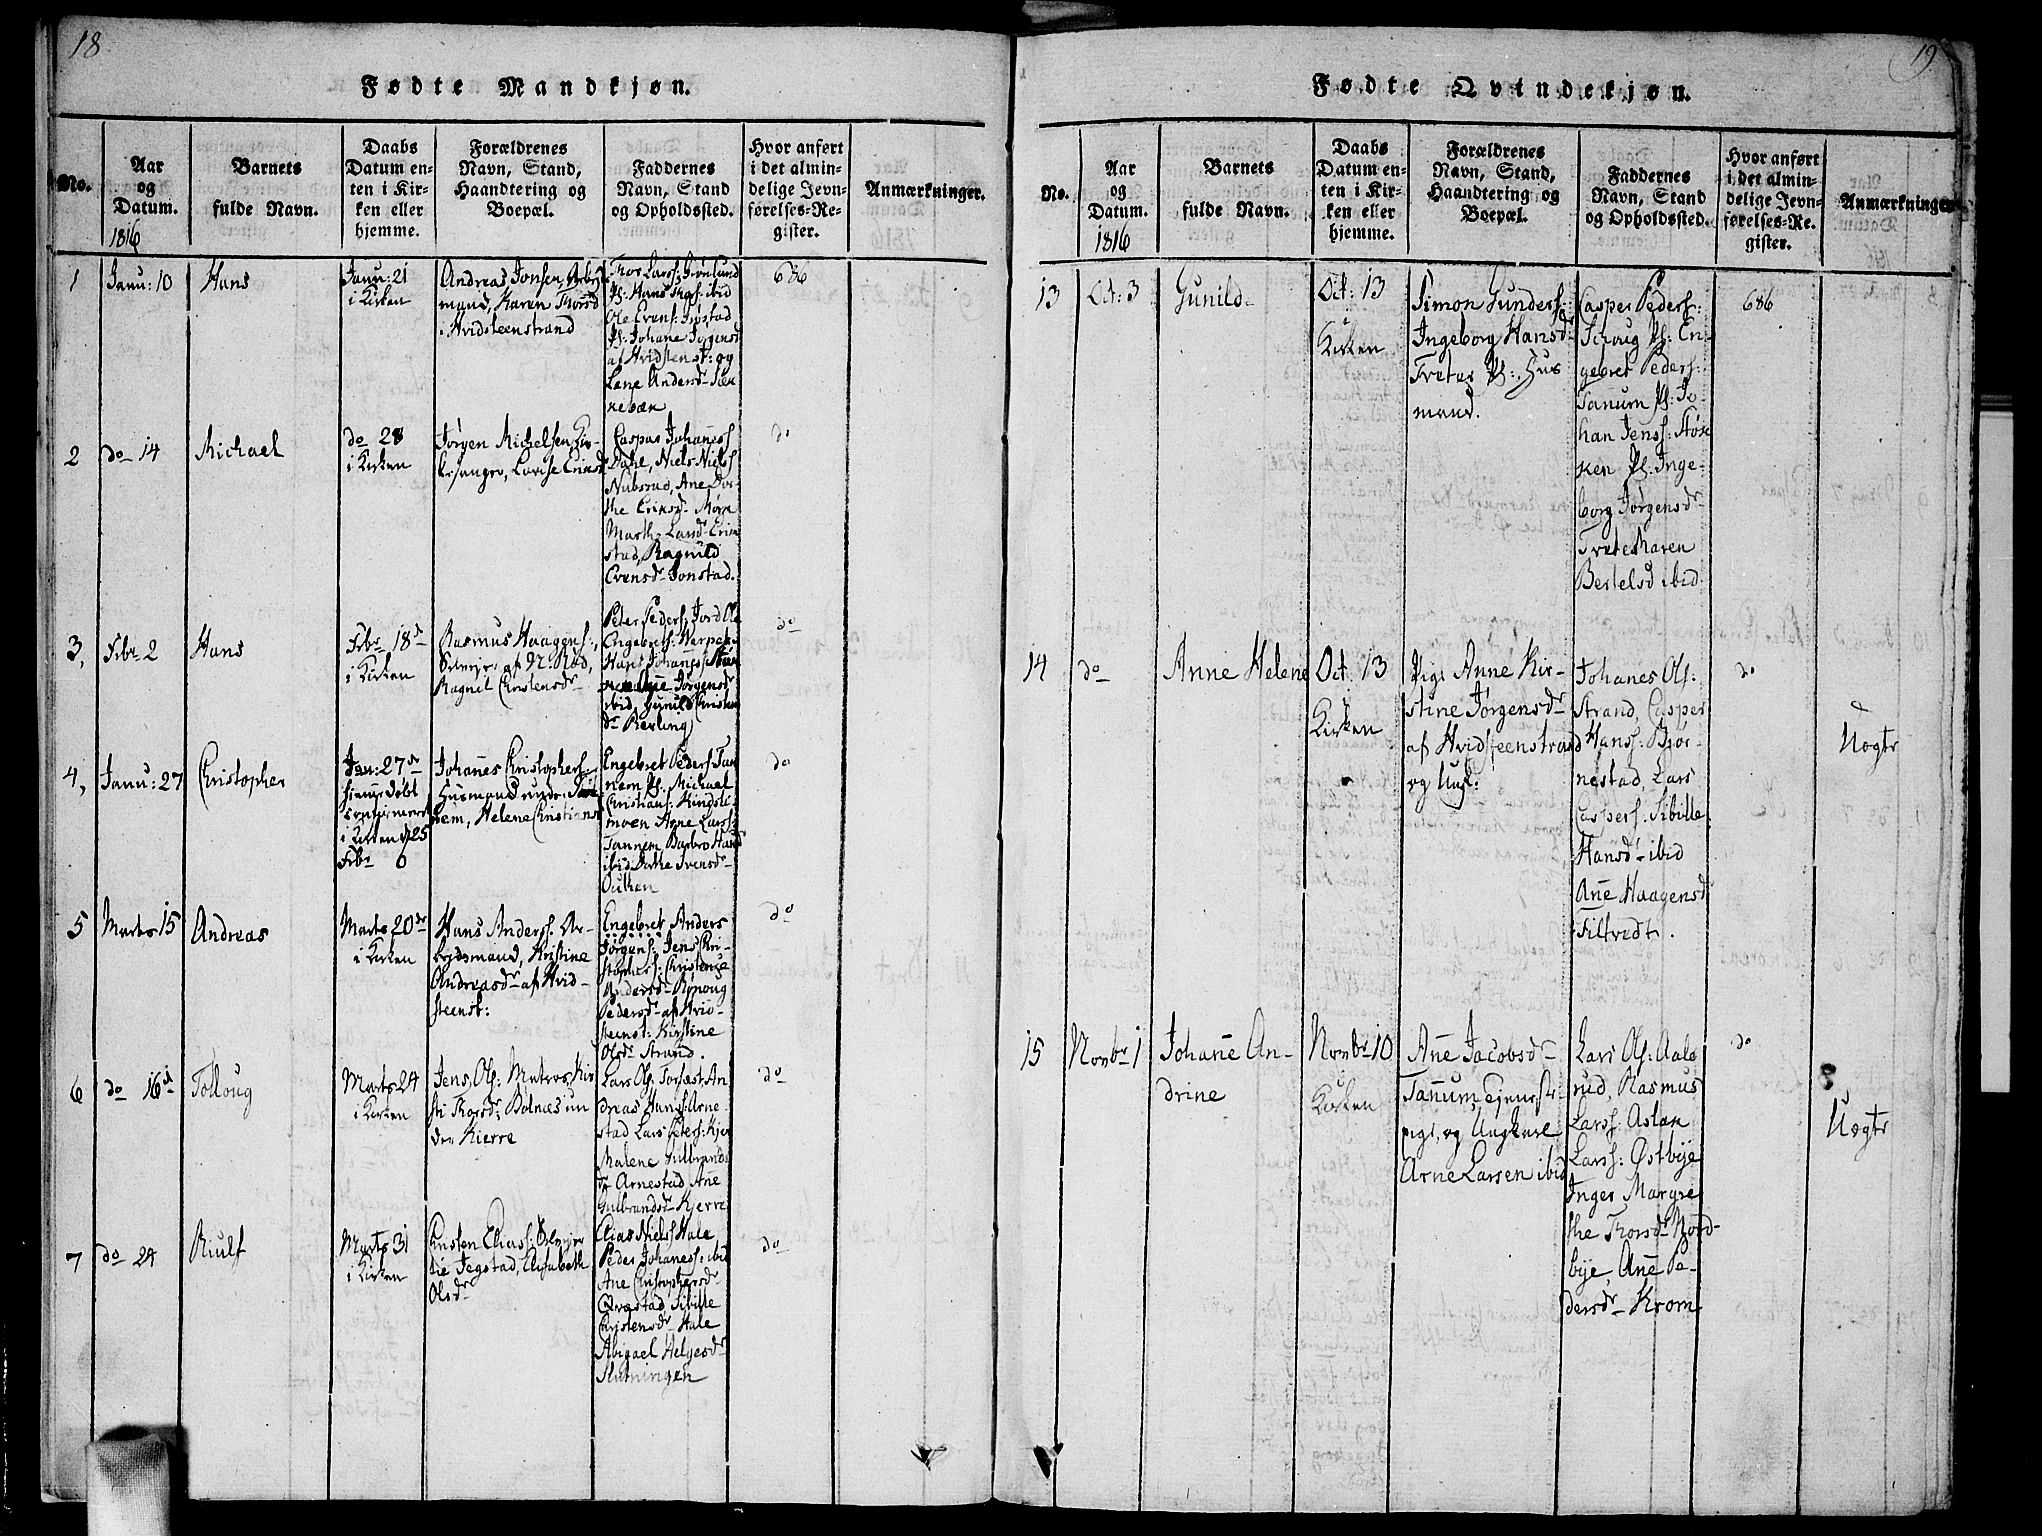 18
Fødte Mandkjøn.
No.
Aar
og
Datum.
1816
Barnets
fulde Navn.
Daabs
Datum en-
ten i Kir-
ken eller
hjemme.
Forældrenes
Navn, Stand,
Haandtering og
Boepæl.
Faddernes
Navn, Stand
og Opholdssted.
Hvor anført
i det almin-
delige Jevn-
førelses-Re-
gister.
Anmærkninger.
1
Janu: 10
Hans
Janu: 21
i Kirken
Andreas Jonsen, Arbejds-
mand, Karen Thorsd
Hvidsteenstrand
Thor Larss: Grønlund
ibid
Ole Evens:
Pl: Johane Jørgensd
af Hvidstenst: og
Lene Andersd
686
2
do 14
Michael
do 28
i Kirken
Jørgen Michelsen Kir-
kesanger, Lovise Eriksd
Caspar Johaness
Dahe, Niels Niels
Nubsrud, Ane Dor-
the Eriksd
stad, Ragnild
Evensd Jonstad.
do
3,
Febr 2
Hans
Febr 18
i Kirken
Rasmus Haagens:,
Selvejer af N: Rød,
Ragnil Christensdr
Peter Peders:
Engebrets:
Hans Johaness:
Jørgensdr
ibid, Gunild Christen
dr
do
4,
Janu: 27
Christopher
Jan: 27
hjemme døbt
i Kirken d 25
Febr
Johanes Christophers
Husmand under
hem, Helene Christians
Engebret Peders
Pl. Michael
Christians:
moen Arne Larss:
Tannem, Barbro Hansd
ibid Iversd
do
5
Marts 15
Andreas
Marts 20de
i Kirken
Hans Anderss: Ar-
bejdsmand, Kristine
Andreasdr af Hvid-
steenst:
Engebret Anders
Jørgens: Jens Chri-
stophers: Christence
Andersd
Pedersd af Hvid-
steenst: Kirstine
Olsdr Strand.
do
6
do 16d
Tolloug
Marts 24
i Kirken
Jens Ols: Matros, Kir
sti Thorsdr, Bølnæs un
der Kierre
Lars Ols: Torfæst, An
dreas Hans: Arne
stad Lars Peters: Kjer
Malene Gulbrands
dr Arnestad Ane
Gulbrandsdr Kjerre
do
7
do 24
Riulf
Marts 31
i Kirken
Christen Elias: Selvejer
Jegstad, Elisabeth
Olsdr
Elias Niels Hale
Peder Johaness: ibid
Ane Christophersdr
Sibille
Christensdr Hale
Abigael Helgesdr
Slutningen
do
19
Fødte Qvindekjøn.
No.
Aar
og
Datum.
1816
Barnets
fulde Navn.
Daabs
Datum en-
ten i Kir-
ken eller
hjemme.
Forældrenes
Navn, Stand,
Haandtering og
Boepæl.
Faddernes
Navn, Stand
og Opholdssted.
Hvor anført
i det almin-
delige Jevn-
førelses-Re-
gister.
Anmærkninger
13
Oct: 3
Gunild
Oct: 13
Kirken
Simon Gunders:
Ingeborg Hansdr
Treter Pl: Hus
mand.
Casper Peders:
Schoug Pl: En-
gebret Peders:
Tanum Pl: Jo-
han Jens: Støk
ken Pl: Inge-
borg Jørgensdr
Trete Karen
Bertelsd ibid
686
14
do
Anne Helene
Oct: 13
Kirken
Pige Anne Kir-
stine Jørgensdr
af Hvidsteenstrand
og Ugl:
Johanes Ols.
Strand, Casper
Hans: Bjør-
nestad, Lars
Caspers: Sibille
Hansd ibid
Ane Haagensd
Filtvedt.
do
Uegte
15
Novbr 1
Johane An-
drine
Novbr 10
Kirken
Ane Jacobsd
Tanum tjenesti-
pige, og Ungkarl
Arne Larsen ibid
Lars Ols: Aale
rud, Rasmus
Larss: Aslak
Larss: Østbye
Inger Margre
the Thorsdr Nord-
bye, Ane Pe-
dersdr Krom
do
Uegte